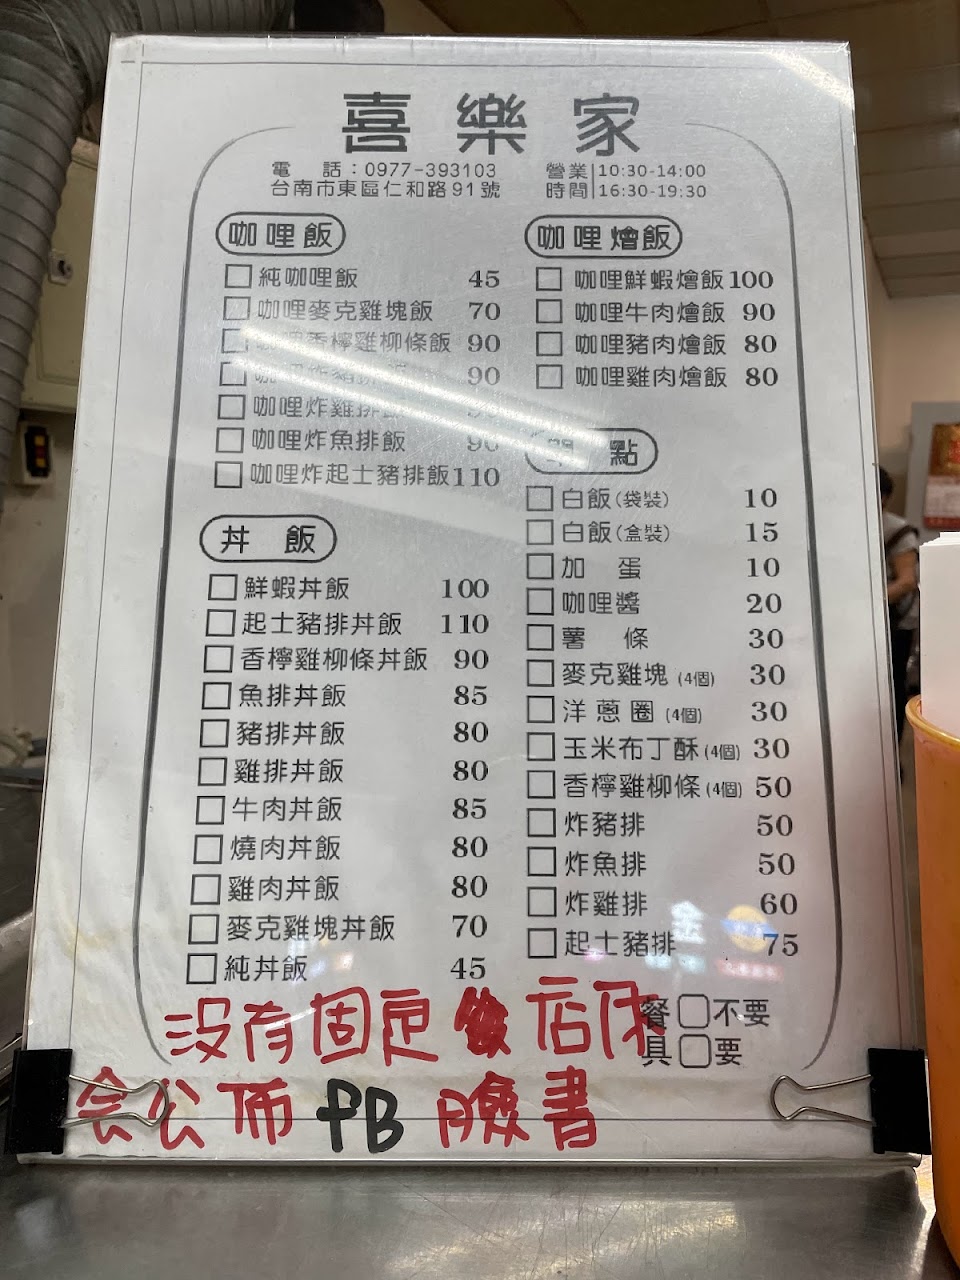 喜樂家
電　話：0977-393103
台南市東區仁和路91號
營業時間 10:30-14:00
16:30-19:30
咖哩飯
純咖哩飯 45
咖哩麥克雞塊飯 70
咖哩香檸雞柳條飯 90
咖哩炸豬 90
咖哩炸雞排
咖哩炸魚排飯 90
咖哩炸起士豬排飯 110
丼飯
鮮蝦丼飯 100
起士豬排丼飯 110
香檸雞柳條丼飯 90
魚排丼飯 85
豬排丼飯 80
雞排丼飯 80
牛肉丼飯 85
燒肉丼飯 80
雞肉丼飯 80
麥克雞塊丼飯 70
純丼飯 45
咖哩燴飯
咖哩鮮蝦燴飯 100
咖哩牛肉燴飯 90
咖哩豬肉燴飯 80
咖哩雞肉燴飯 80
單點
白飯(袋裝) 10
白飯(盒裝) 15
加蛋 10
咖哩醬 20
薯條 30
麥克雞塊(4個) 30
洋蔥圈(4個) 30
玉米布丁酥(4個) 30
香檸雞柳條(4個) 50
炸豬排 50
炸魚排 50
炸雞排 60
起士豬排 75
餐具 不要
要
沒有固定 店休
会公佈 FB 臉書